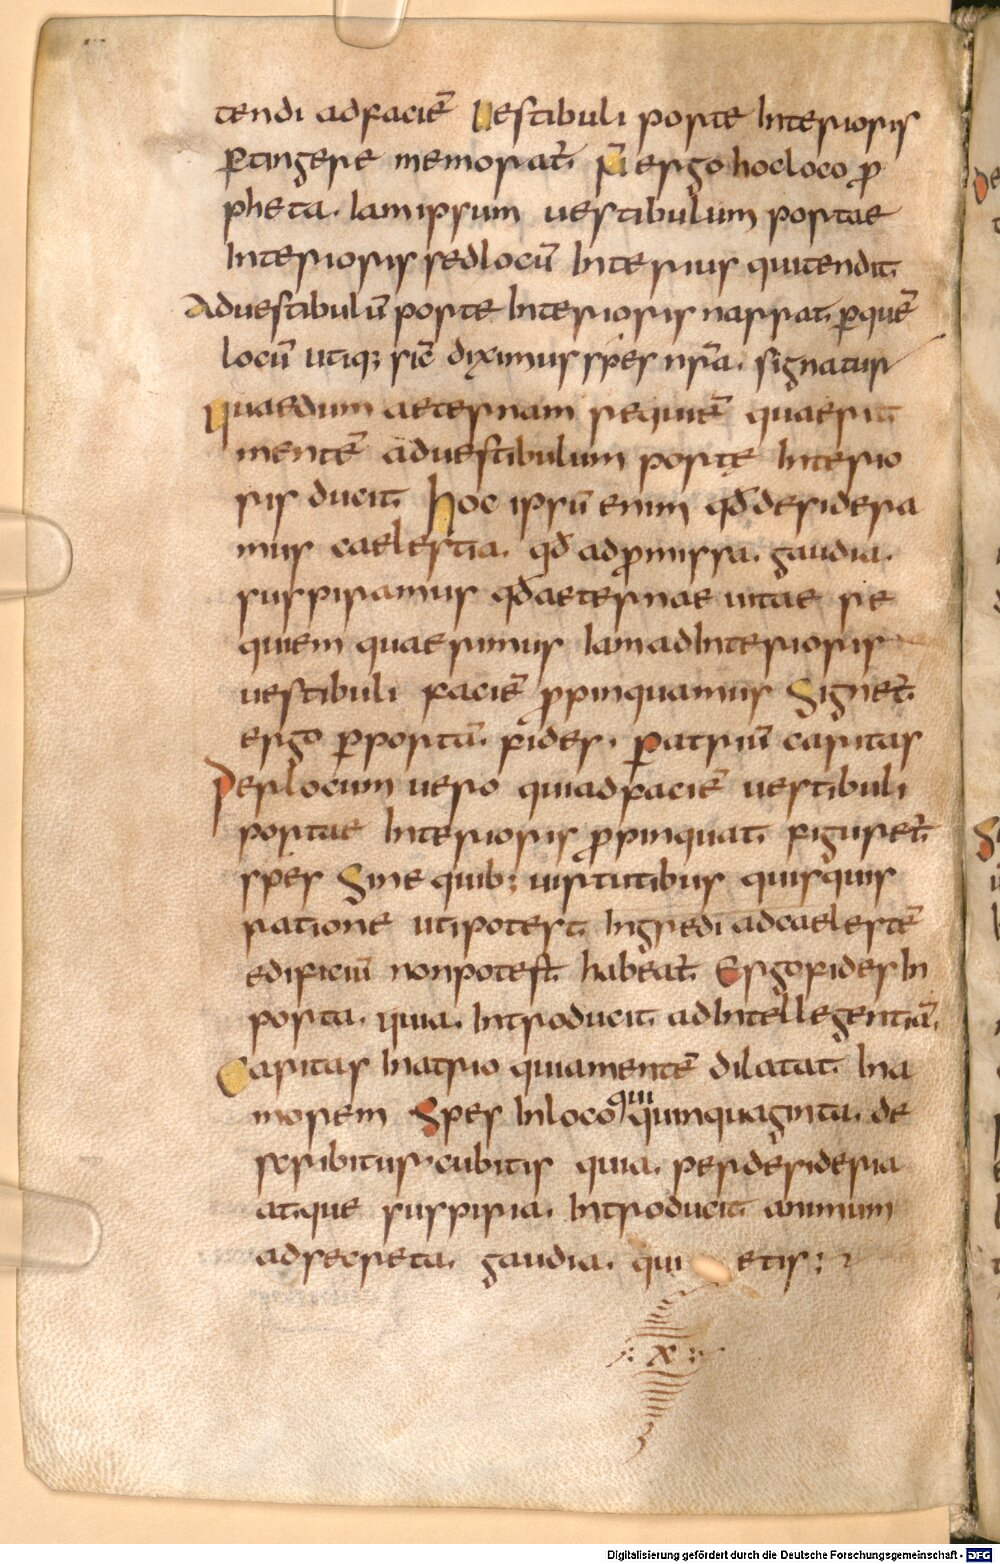 tendi adfaciē Vestibuli porte Interioris
ꝑtingere memorat̄. Nō ergo hocloco ꝓ
pheta. Iamipsum uestibulum portae
Interioris sedlocū Interius quitendit.
Aduestibulū porte Interioris narrat. ꝑquē
locū utiq; sic̄ diximus sp̄es nr̄a. signatur
quaedum aeternam requiē quaerit
mentē aduestibulum porte Interio
ris ducit. hoc ipsū enim qd̄desidera
mus caelestia. qd̄ adꝓmissa. gaudia.
suspiramus qd̄aeternae uitae re
quiem quaerimus Iamadinterioris
uestibuli faciē ꝓpinquamus Signet̄.
ergo ꝑportā. fides. ꝑatriū caritas
Perlocum uero quiadfaciē uestibuli
portae Interioris ꝓpinquat. figuret̄
sp̄es Sine quib; uirtutibus quisquis
ratione utipotest. Ingredi adcaelestē
edificiū nonpotest. habeat̄. Ergofides In
porta. quia. Introducit. adIntellegentiā.
Caritas Inatrio quiamentē dilatat. Ina
morem Spes Inloco qui quinquaginta. de
scribitur cubitis quia. perdesideria
atque suspiria. Introducit. animum
adsecreta. gaudia. qui etis;
x
Digitalisierung gefördert durch die Deutsche Forschungsgemeinschaft - DFG